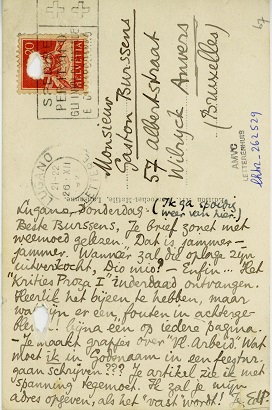 20
HELVETIA
LUGANO
26.XII
Monsieur
Gaston Burssens
57 Albertstraat
Wilryck Anvers
(Bruxelles)
AMVC
LETTERENHUIS
Lugano, Donderdag. (Ik ga spoedig
weer van hier.)
Beste Burssens, Je brief zonet met
weemoed gelezen. "Dat is jammer—
jammer. Wanneer zal die oplage zijn
uitverkocht, Dio mio? — Enfin... Het
"Krities Proza I" inderdaad ontvangen.
Heerlijk het bijeen te hebben, maar
wat zijn er een fouten in achterge-
bleven! bijna één op iedere pagina.
— Je maakt grapjes over "Vl. Arbeid". Wat
moet ik in Godsnaam in een feestnr.
gaan schrijven??? Je artikel zie ik met
spanning tegemoet. Ik zal je mijn
adres opgeven, als het "vast" wordt! Je EdP.